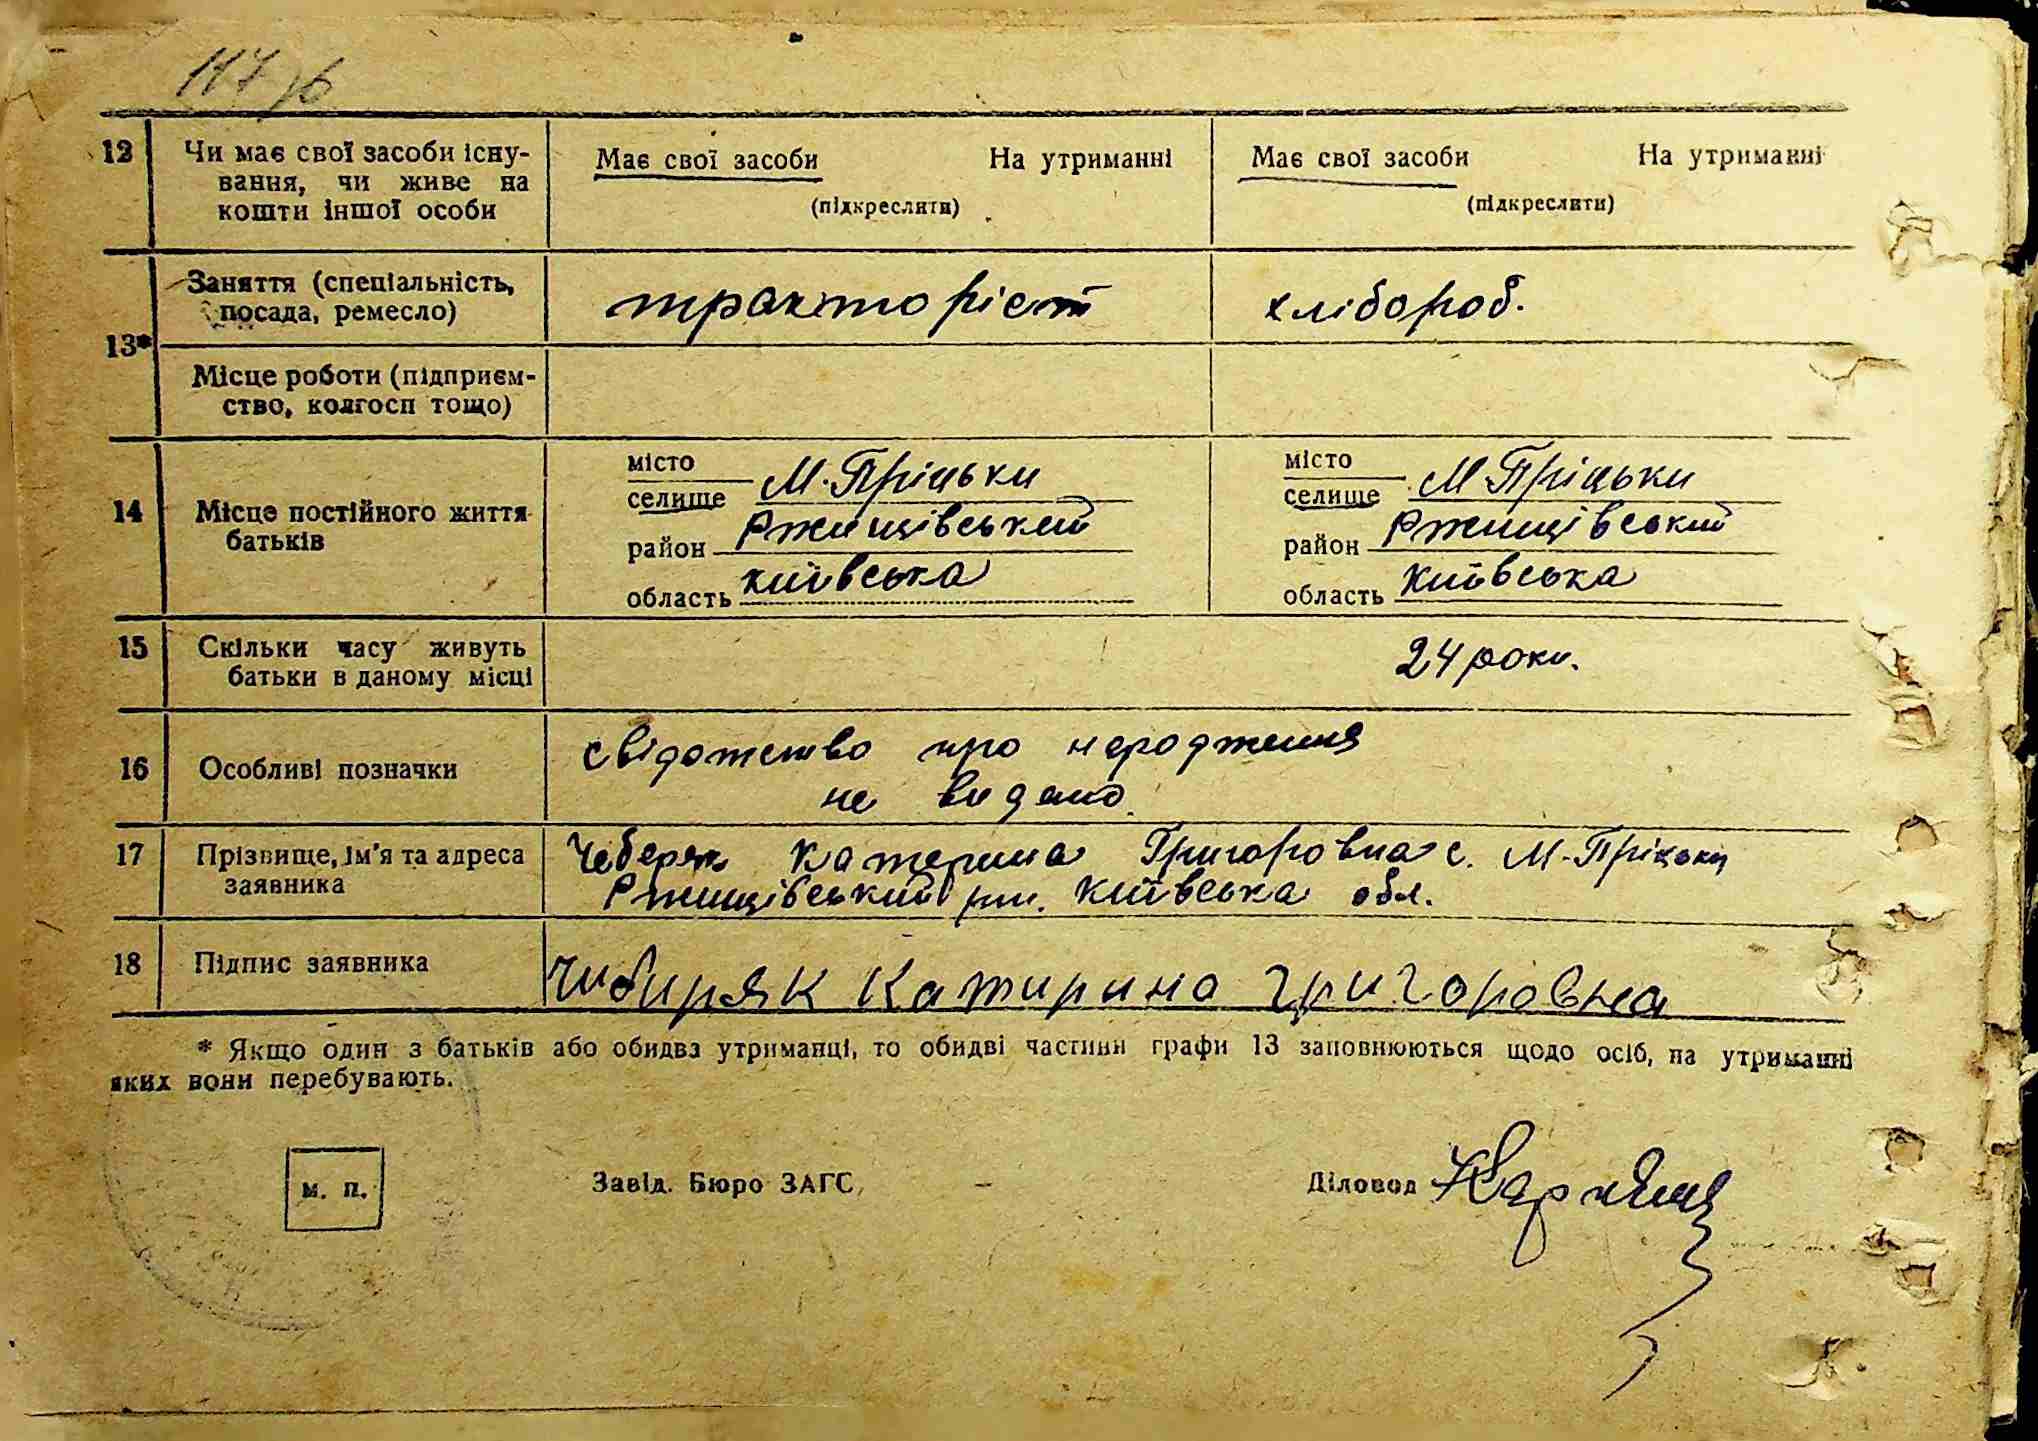 117 зв
12 Чи має свої засоби існу- Має свої засоби На утриманні Має свої засоби На утриманні
вання, чи живе на
кошти іншої особи (підкреслити) (підкреслити)
Заняття (спеціальність, тракторіст хлібороб.
посада, ремесло)
13*
Місце роботи (підприєм-
ство, колгосп тощо)
місто місто
селище М. Пріцьки селище М Пріцьки
14 Місце постійного життя
батьків
район Ржищівський район Ржищівський
область київська область київська
15 Скільки часу живуть 24 роки.
батьки в даному місці
свідотство про народження
16 Особливі позначки
не видано
17 Прізвище, ім'я та адреса Чеберяк Катерина Григоровна с. М-Пріцьки
заявника Ржищівський рн. київська обл.
18 Підпис заявника Чибиряк Катирина григоровна
* Якщо один з батьків або обидва утриманці, то обидві частини графи 13 заповнюються щодо осіб, на утриманні
яких вони перебувають.
м. п. Завід. Бюро ЗАГС Діловод